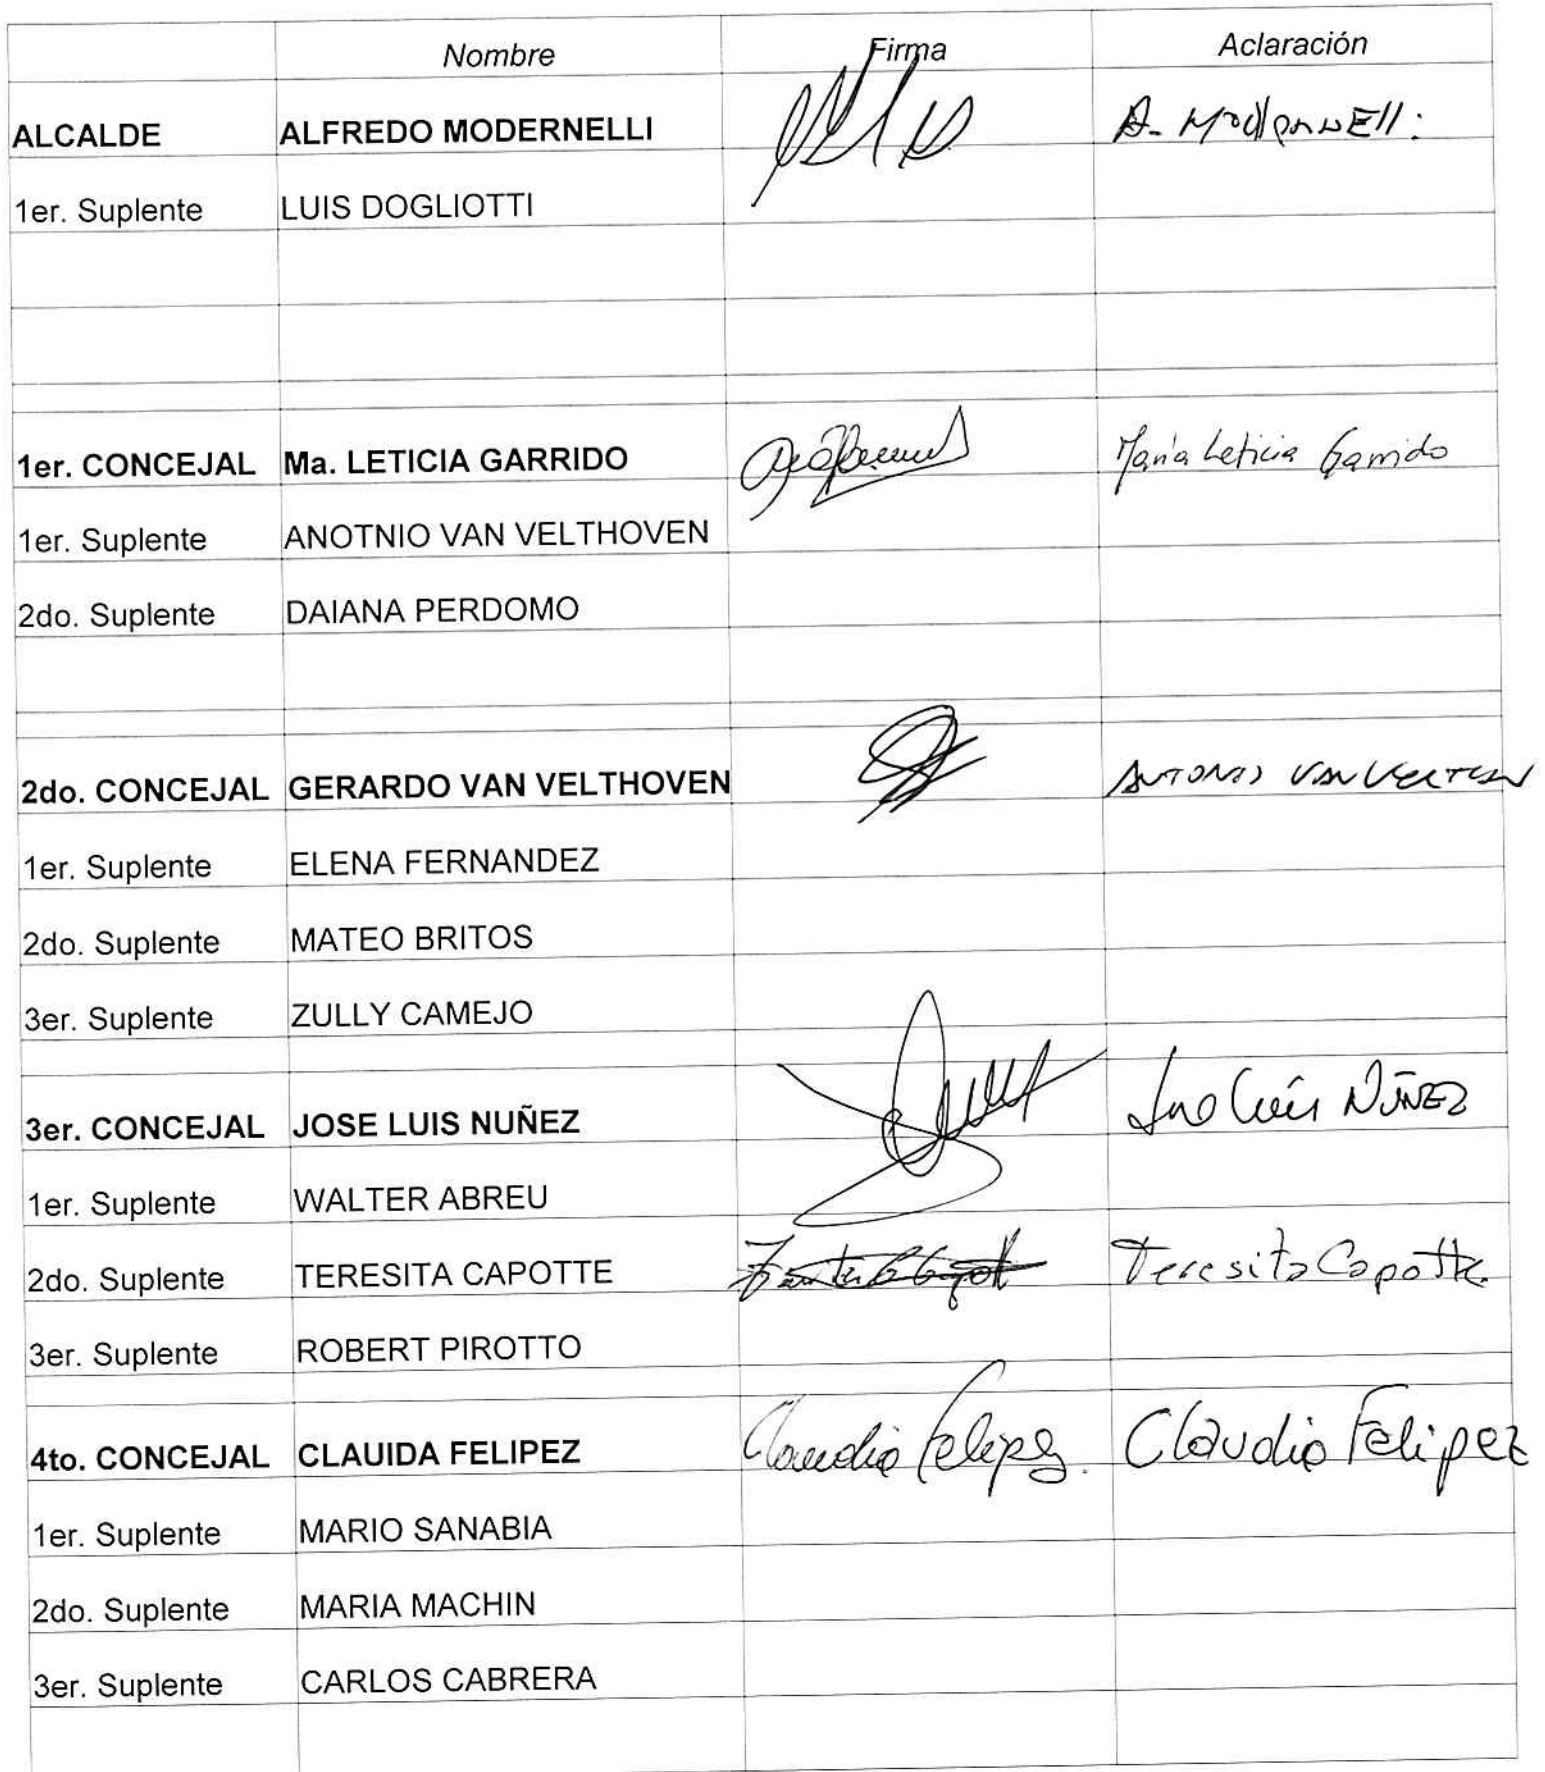 Nombre Firma Aclaración
ALCALDE ALFREDO MODERNELLI A. Modernelli
1er. Suplente LUIS DOGLIOTTI
1er. CONCEJAL Ma. LETICIA GARRIDO María Leticia Garrido
1er. Suplente ANOTNIO VAN VELTHOVEN
2do. Suplente DAIANA PERDOMO
2do. CONCEJAL GERARDO VAN VELTHOVEN ANTONIO VAN
1er. Suplente ELENA FERNANDEZ
2do. Suplente MATEO BRITOS
3er. Suplente ZULLY CAMEJO
3er. CONCEJAL JOSE LUIS NUÑEZ Luis NUÑEZ
1er. Suplente WALTER ABREU
2do. Suplente TERESITA CAPOTTE Teresita Capotte
3er. Suplente ROBERT PIROTTO
4to. CONCEJAL CLAUIDA FELIPEZ Claudia Felipez Claudia Felipez
1er. Suplente MARIO SANABIA
2do. Suplente MARIA MACHIN
3er. Suplente CARLOS CABRERA